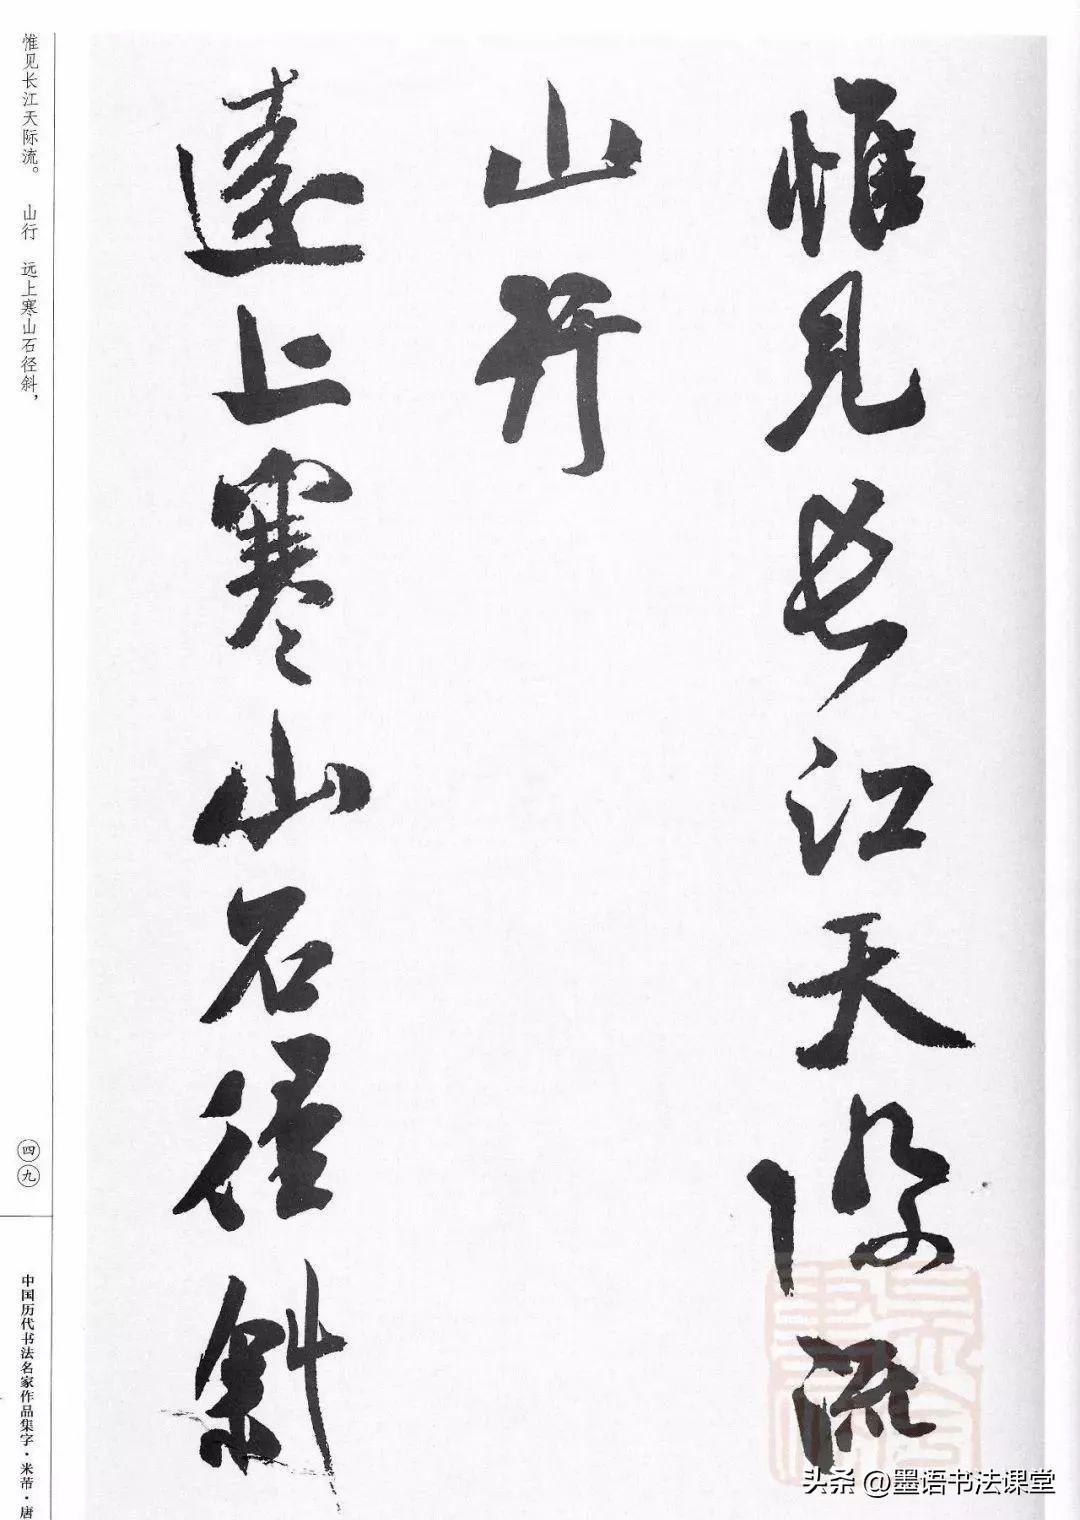 惟見長江天際流
山行
遠上寒山石徑斜
惟见长江天际流。 山行 远上寒山石径斜，
四九
中国历代书法名家作品集字·米芾·唐
头条 @墨语书法课堂